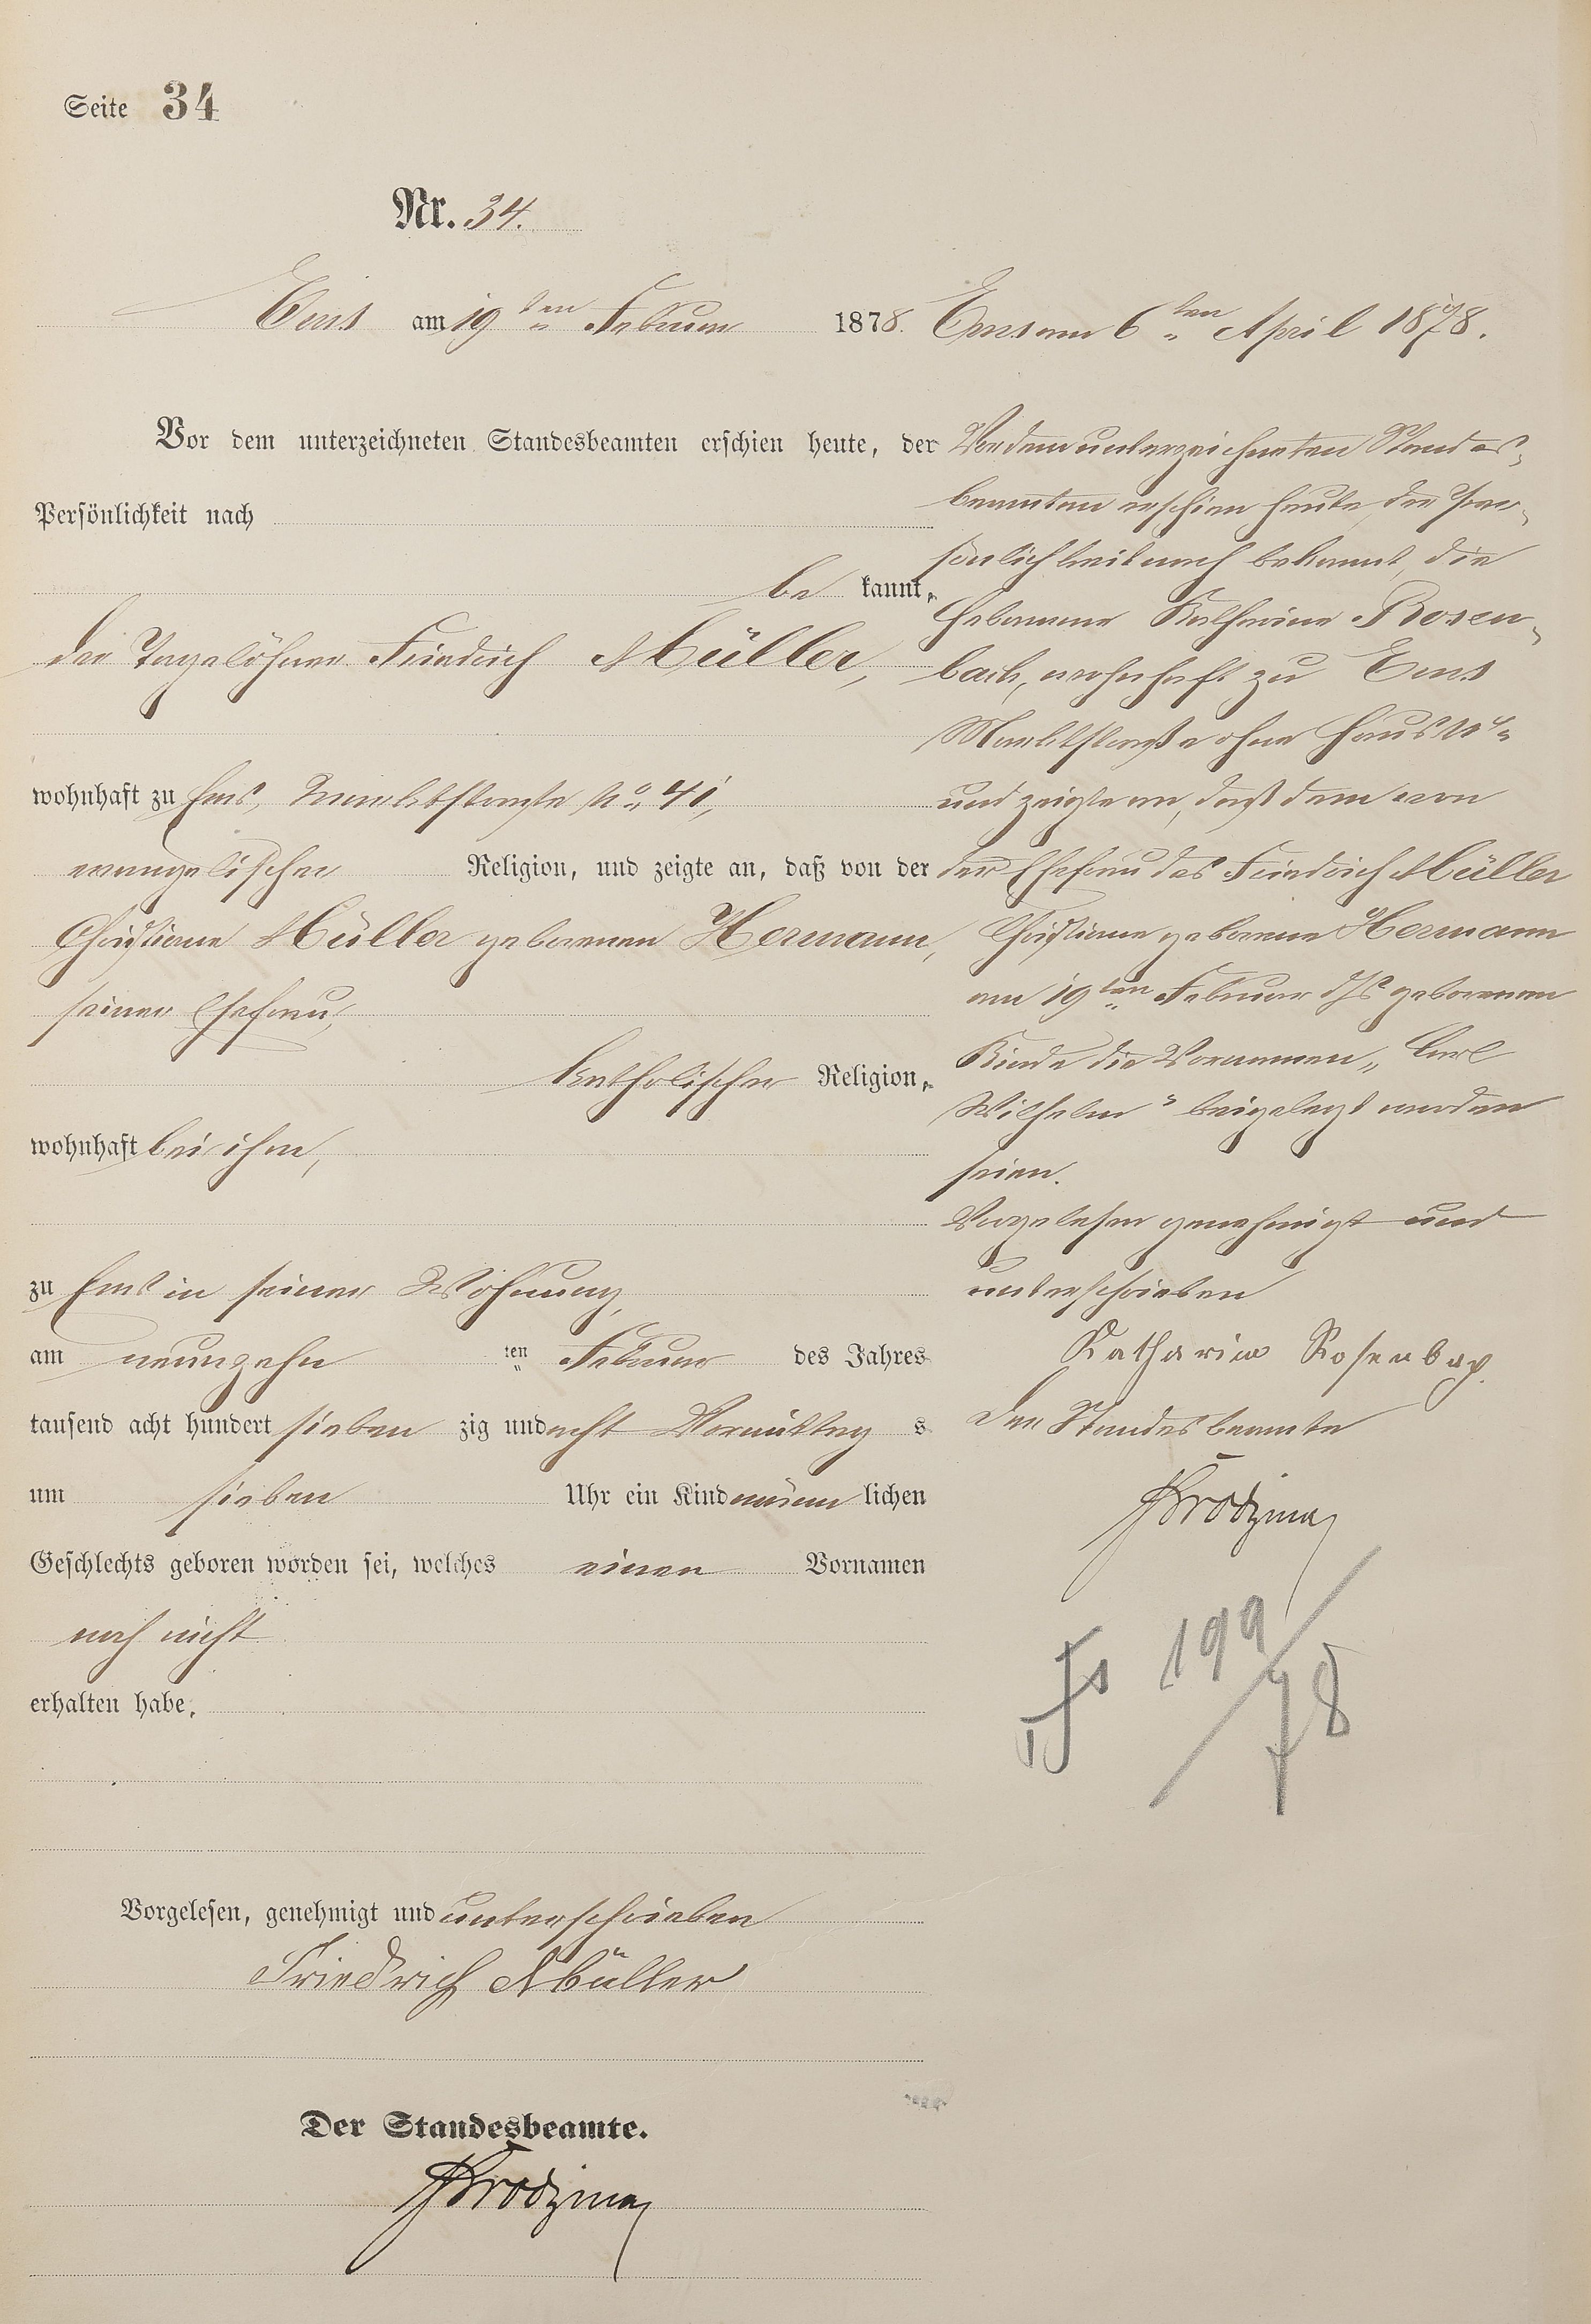 Seite 34
Nr. 34.
Ems am 19ten Februar 1878.
Vor dem unterzeichneten Standesbeamten erschien heute, der
Persönlichkeit nach
be kannt,
der Tagelöhner Friedrich Müller,
wohnhaft zu Ems, Marktstraße No. 41,
evangelischer Religion, und zeigte an, daß von der
Christiane Müller geborenen Hermann,
seiner Ehefrau,
katholischer Religion,
wohnhaft bei ihm,
zu Ems in seiner Wohnung,
am neunzehn ten Februar des Jahres
tausend acht hundert sieben zig und acht Vormittag s
um sieben Uhr ein Kind männ lichen
Geschlechts geboren worden sei, welches einen Vornamen
noch nicht
erhalten habe.
Vorgelesen, genehmigt und unterschrieben
Friedrich Müller
Der Standesbeamte.
Ems am 6ten April 1878.
Vor dem unterzeichneten Standes-
beamten erschien heute, der Per-
sönlichkeit nach bekannt, die
Hebamme Katharina Rosen-
bach, wohnhaft zu Ems
Marktstraße ohne Haus No.
und zeigte an, daß dem von
der Ehefrau des Friedrich Müller
Christiane geborene Hermann
am 19ten Februar d/Js geborenen
Kinde die Vornamen „Carl
Wilhelm“ beigelegt worden
seien.
Vorgelesen genehmigt und
unterschrieben
Katharina Rosenbach
Der Standesbeamte
199/78